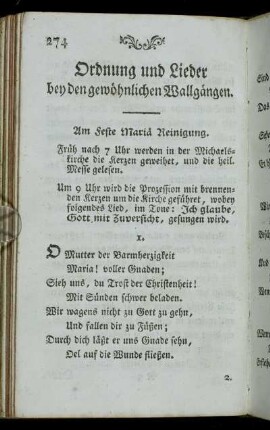 274
Ordnung und Lieder
bey den gewöhnlichen Wallgängen.
Am Feste Mariä Reinigung.
Früh nach 7 Uhr werden in der Michaels-
kirche die Kerzen geweihet, und die heil.
Messe gelesen.
Um 9 Uhr wird die Prozession mit brennen-
den Kerzen um die Kirche geführet, wobey
folgendes Lied, im Tone: Ich glaube,
Gott mit Zuversicht, gesungen wird.
1.
O Mutter der Barmherzigkeit
Maria! voller Gnaden;
Sieh uns, du Trost der Christenheit!
Mit Sünden schwer beladen.
Wir wagens nicht zu Gott zu gehn,
Und fallen dir zu Füßen;
Durch dich läßt er uns Gnade sehn,
Oel auf die Wunde fließen.
2.